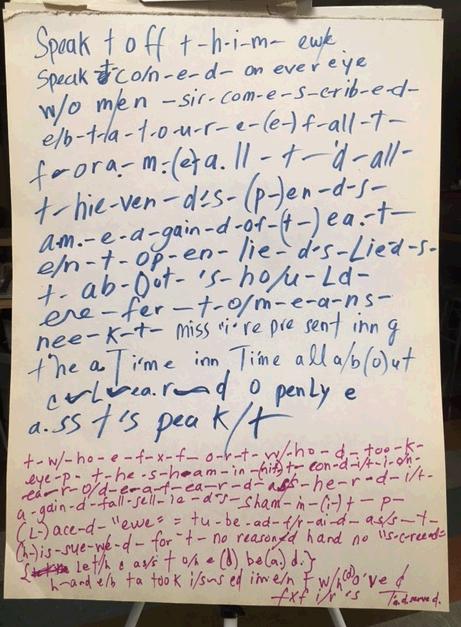 Speak t off t-h-i-m- ewe
Speak t co/n-e-d- on ever eye
w/o m/en -sir-com-e-s-crib-e-d-
e/b-t-a-t-o-u-r-e-e-(e-)f-all-t-
f-or a-m-(e)t a.ll-t-'d-all-
t-hie-ven-d's-(p-)en-d-s-
a.m.-e-d-gain-d-of-(t-)ea.-t-
e/n-t-op-en-lie-d-s-Lied-s-
t-ab-Out-'s-ho/u-Ld-
ere-fer-t-o/m-e-a-ns-
nee-k-t- miss 're pre sent inn g
the a Time inn Time all a/b(o)ut
d O penLy e
a.ss t's pea k/t
t-w/-ho-e-f-x-f-o-r-t-w/-ho-d-took-k-
eye-p-t-he-s-h-am-in-(his)t-con-d-i/t-i-o/n-
ea-r-o/d-e-a-t-ea-r-d-ass-he-r-d-i/t-
a-gain-d-fall-sell-ie-d's-sham-in-(i-)t-p-
(L-)ace-d-"ewe"= tu-be-ad-f/r-ai-d-as/s-t-
(h-)is-sue-we-d- for t- no reasoned hand no "s-creed=
Let/h e as/s it o/h e (d) be(a.)d.}
h-and e/b ta took i/s/s ed inve/n t w/h(o)'ve d
fxf i/r's